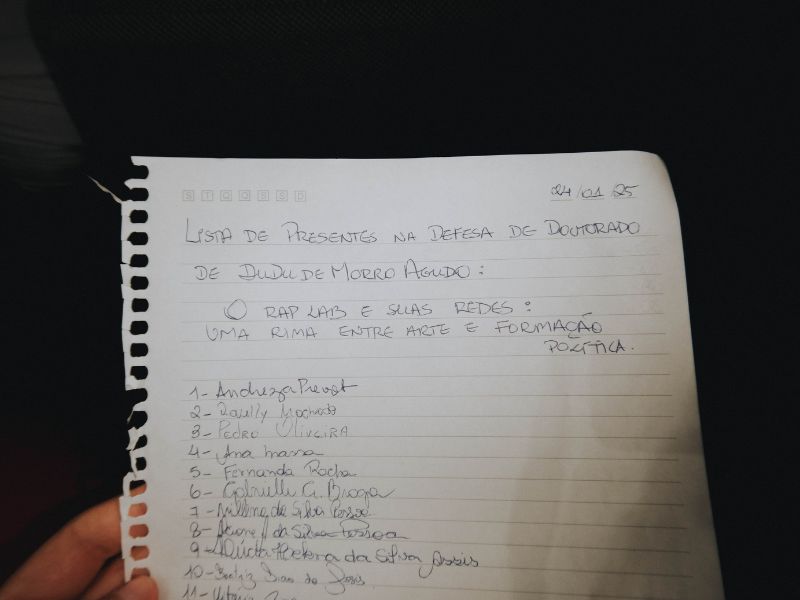 S T Q Q S S D
24/01/25
LISTA DE PRESENTES NA DEFESA DE DOUTORADO
DE DUDU DE MORRO AGUDO:
O RAP LAB E SUAS REDES:
UMA RIMA ENTRE ARTE E FORMAÇÃO
POLÍTICA.
1- Andreza Prevot
2- Machado
3- PEDRO OLIVEIRA
4- Ana
5- Fernanda Rocha
6- Gabrielle G. Braga
7- da Silva Pessoa
8- da Silva Pessoa
9- Lúcia Helena da Silva Assis
10- Beatriz
11-